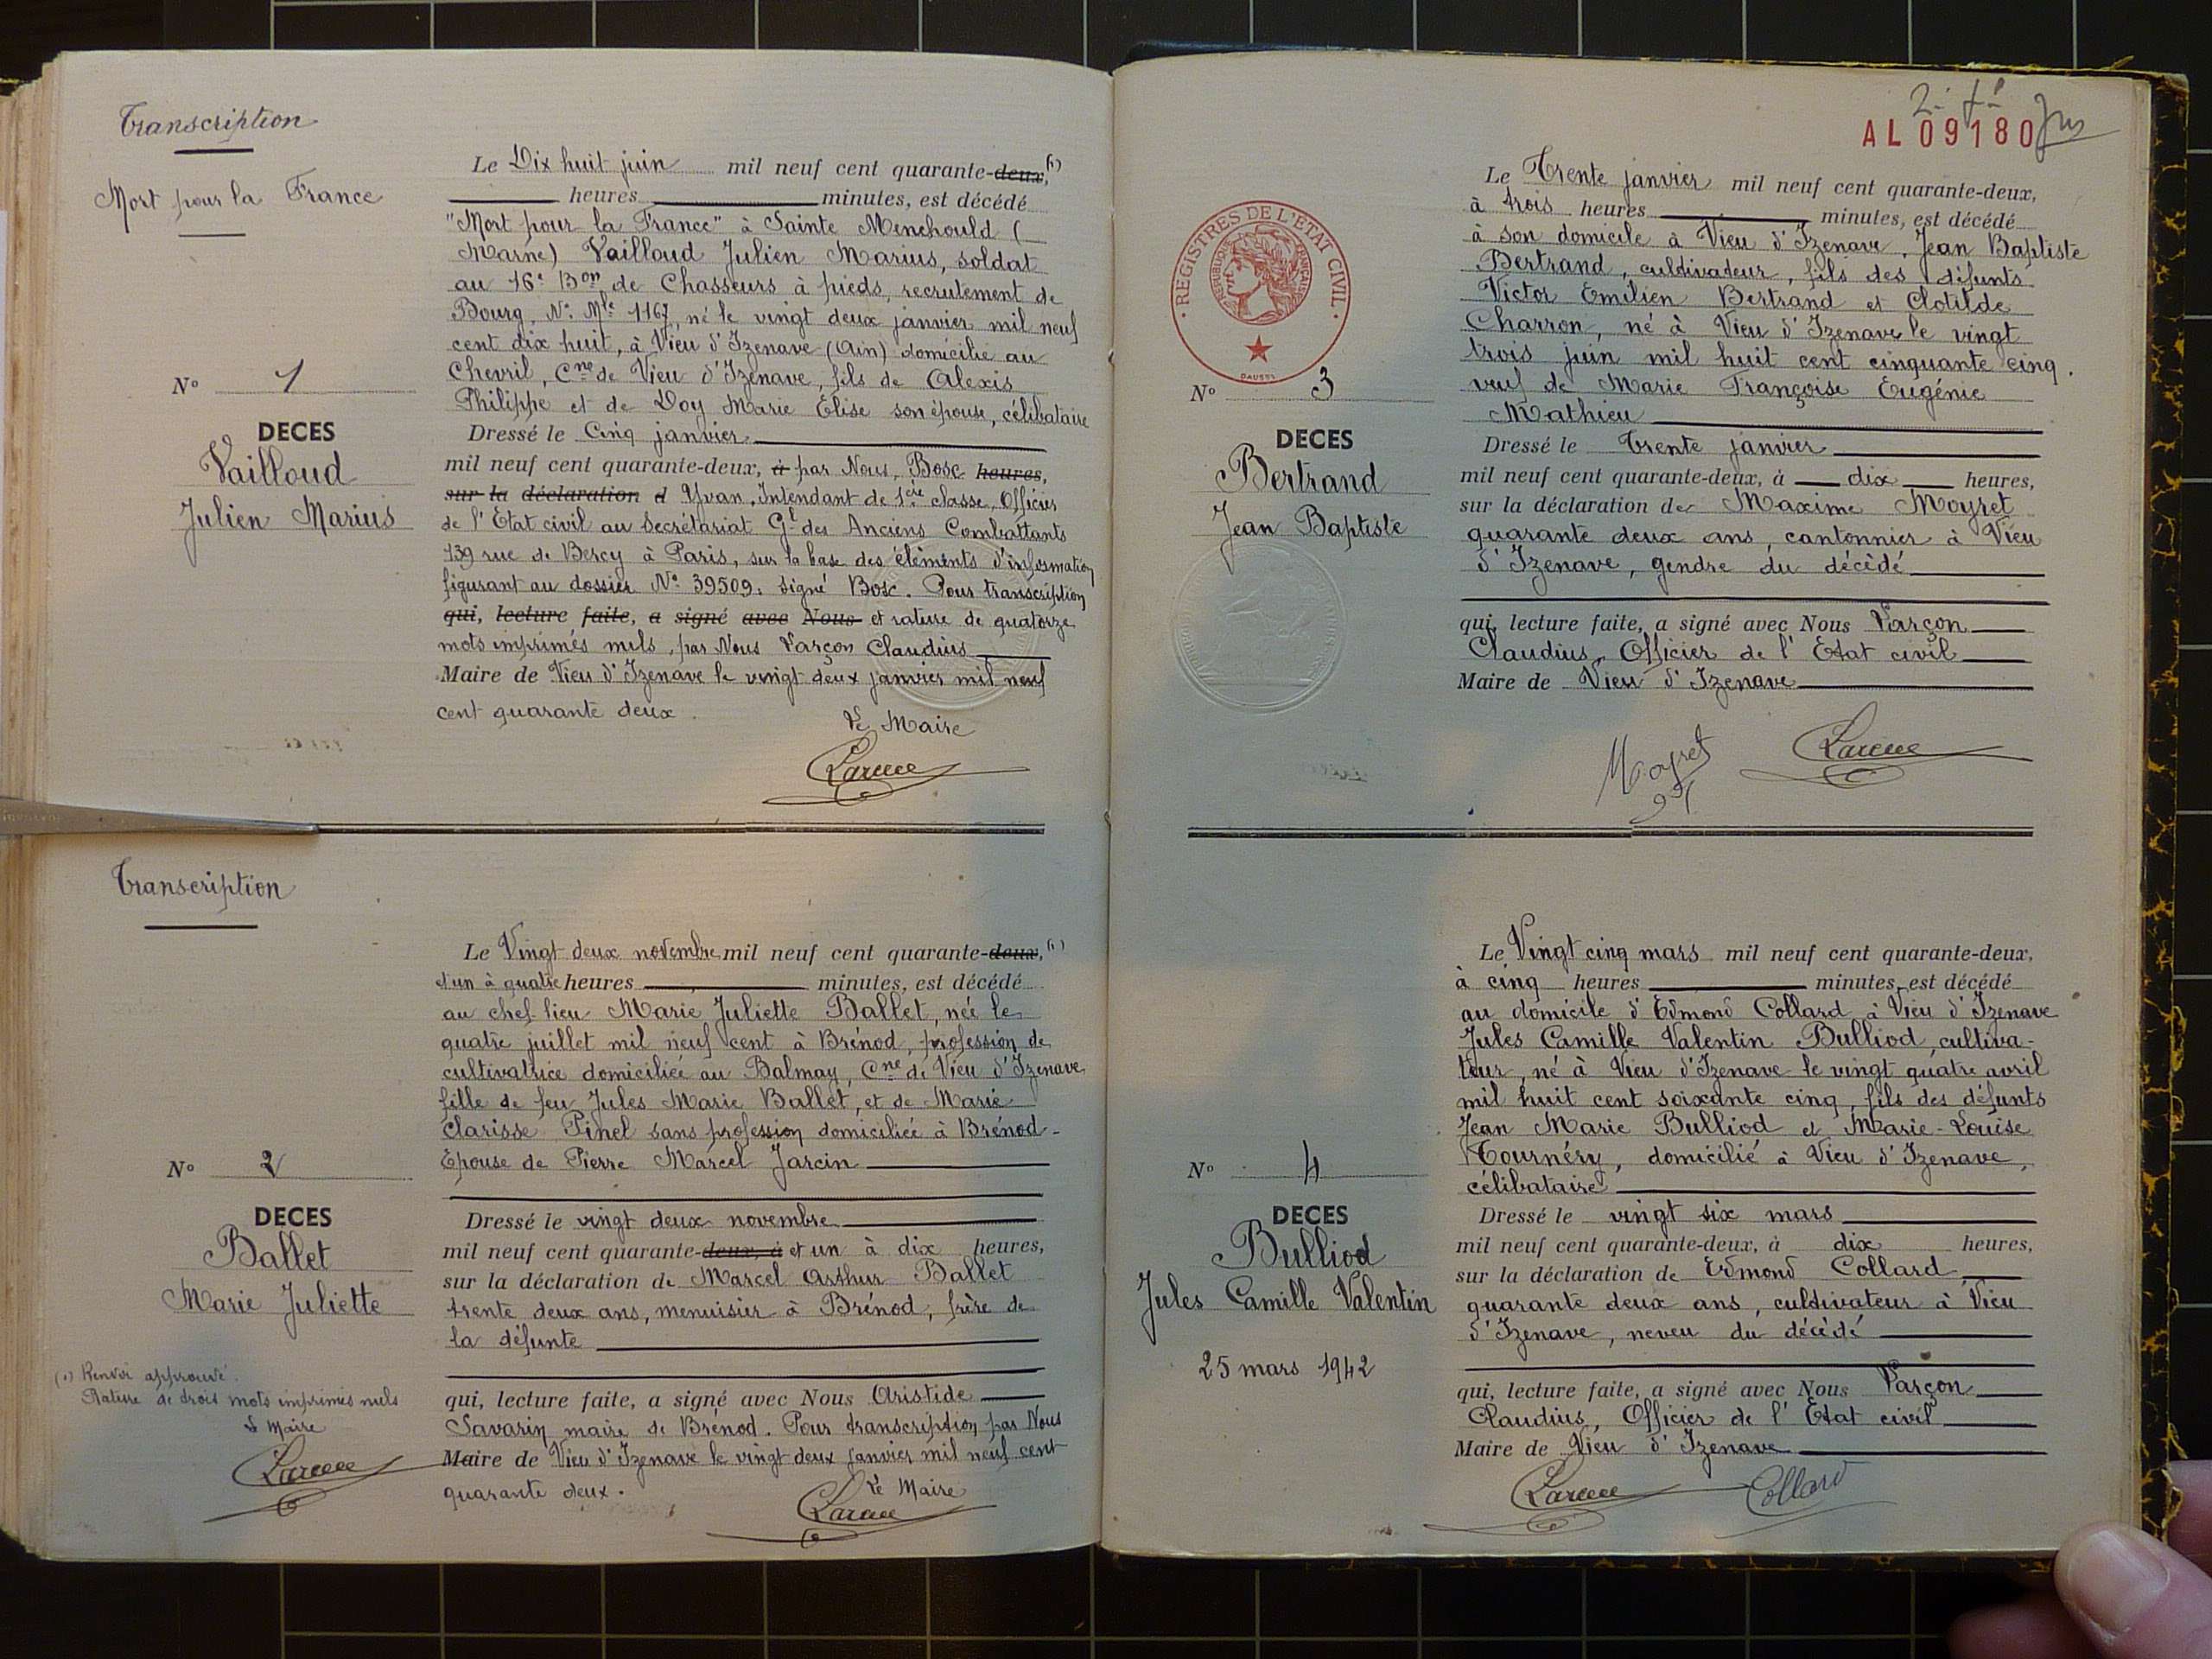 Transcription
Mort pour la France
N° 1
DECES
Vailloud
Julien Marius
Le Dix huit juin mil neuf cent quarante-deux, (1)
heures minutes, est décédé
"Mort pour la France" à Sainte Menehould (
Marne) Vailloud Julien Marius, soldat
au 16e Bon de Chasseurs à pieds, recrutement de
Bourg, N° Mle 1167, né le vingt deux janvier mil neuf
cent dix huit, à Vieu d'Izenave (Ain) domicilié au
Chevril, Cne de Vieu d'Izenave, fils de Alexis
Philippe et de Doy Marie Élise son épouse, célibataire
Dressé le Cinq janvier
mil neuf cent quarante-deux, à par Nous, Bosc heures,
sur la déclaration d Yvan, Intendant de 1ère classe, Officier
de l'État civil au Secrétariat Gl des Anciens Combattants
139 rue de Bercy à Paris, sur la base des éléments d'information
figurant au dossier N° 39509. Signé Bosc. Pour transcription
qui, lecture faite, a signé avec Nous et rature de quatorze
mots imprimés nuls, par Nous Varçon Claudius
Maire de Vieu d'Izenave le vingt deux janvier mil neuf
cent quarante deux.
Le Maire
Transcription
N° 2
DECES
Ballet
Marie Juliette
(1) Renvoi approuvé.
Rature de trois mots imprimés nuls
Le Maire
Le Vingt deux novembre mil neuf cent quarante-deux, (1)
et un à quatre heures minutes, est décédé
au chef-lieu Marie Juliette Ballet, née le
quatre juillet mil neuf cent à Brénod, profession de
cultivatrice domiciliée au Balmay, Cne de Vieu d'Izenave
fille de feu Jules Marie Ballet, et de Marie
Clarisse Pinel sans profession domiciliée à Brénod-
Épouse de Pierre Marcel Jarcin
Dressé le vingt deux novembre
mil neuf cent quarante-deux, à et un à dix heures,
sur la déclaration de Marcel Arthur Ballet
trente deux ans, menuisier à Brénod, frère de
la défunte
qui, lecture faite, a signé avec Nous Aristide
Savarin maire de Brénod. Pour transcription par Nous
Maire de Vieu d'Izenave le vingt deux janvier mil neuf cent
quarante deux.
Le Maire
AL 09180
REGISTRES DE L'ETAT CIVIL
REPUBLIQUE FRANÇAISE
DAUSSY
N° 3
DECES
Bertrand
Jean Baptiste
Le Trente janvier mil neuf cent quarante-deux,
à trois heures minutes, est décédé
à son domicile à Vieu d'Izenave, Jean Baptiste
Bertrand, cultivateur, fils des défunts
Victor Emilien Bertrand et Clotilde
Charron, né à Vieu d'Izenave le vingt
trois juin mil huit cent cinquante cinq.
veuf de Marie Françoise Eugénie
Mathieu
Dressé le Trente janvier
mil neuf cent quarante-deux, à dix heures,
sur la déclaration de Maxime Moyret
quarante deux ans, cantonnier à Vieu
d'Izenave, gendre du décédé
qui, lecture faite, a signé avec Nous Varçon
Claudius, Officier de l'État civil
Maire de Vieu d'Izenave
Moyret
N° 4
DECES
Bulliod
Jules Camille Valentin
25 mars 1942
Le Vingt cinq mars mil neuf cent quarante-deux,
à cinq heures minutes, est décédé
au domicile d'Edmond Collard à Vieu d'Izenave
Jules Camille Valentin Bulliod, cultiva-
teur, né à Vieu d'Izenave le vingt quatre avril
mil huit cent soixante cinq, fils des défunts
Jean Marie Bulliod et Marie-Louise
Tournéry, domicilié à Vieu d'Izenave,
célibataire
Dressé le vingt six mars
mil neuf cent quarante-deux, à dix heures,
sur la déclaration de Edmond Collard,
quarante deux ans, cultivateur à Vieu
d'Izenave, neveu du décédé
qui, lecture faite, a signé avec Nous Varçon
Claudius, Officier de l'État civil
Maire de Vieu d'Izenave
Collard